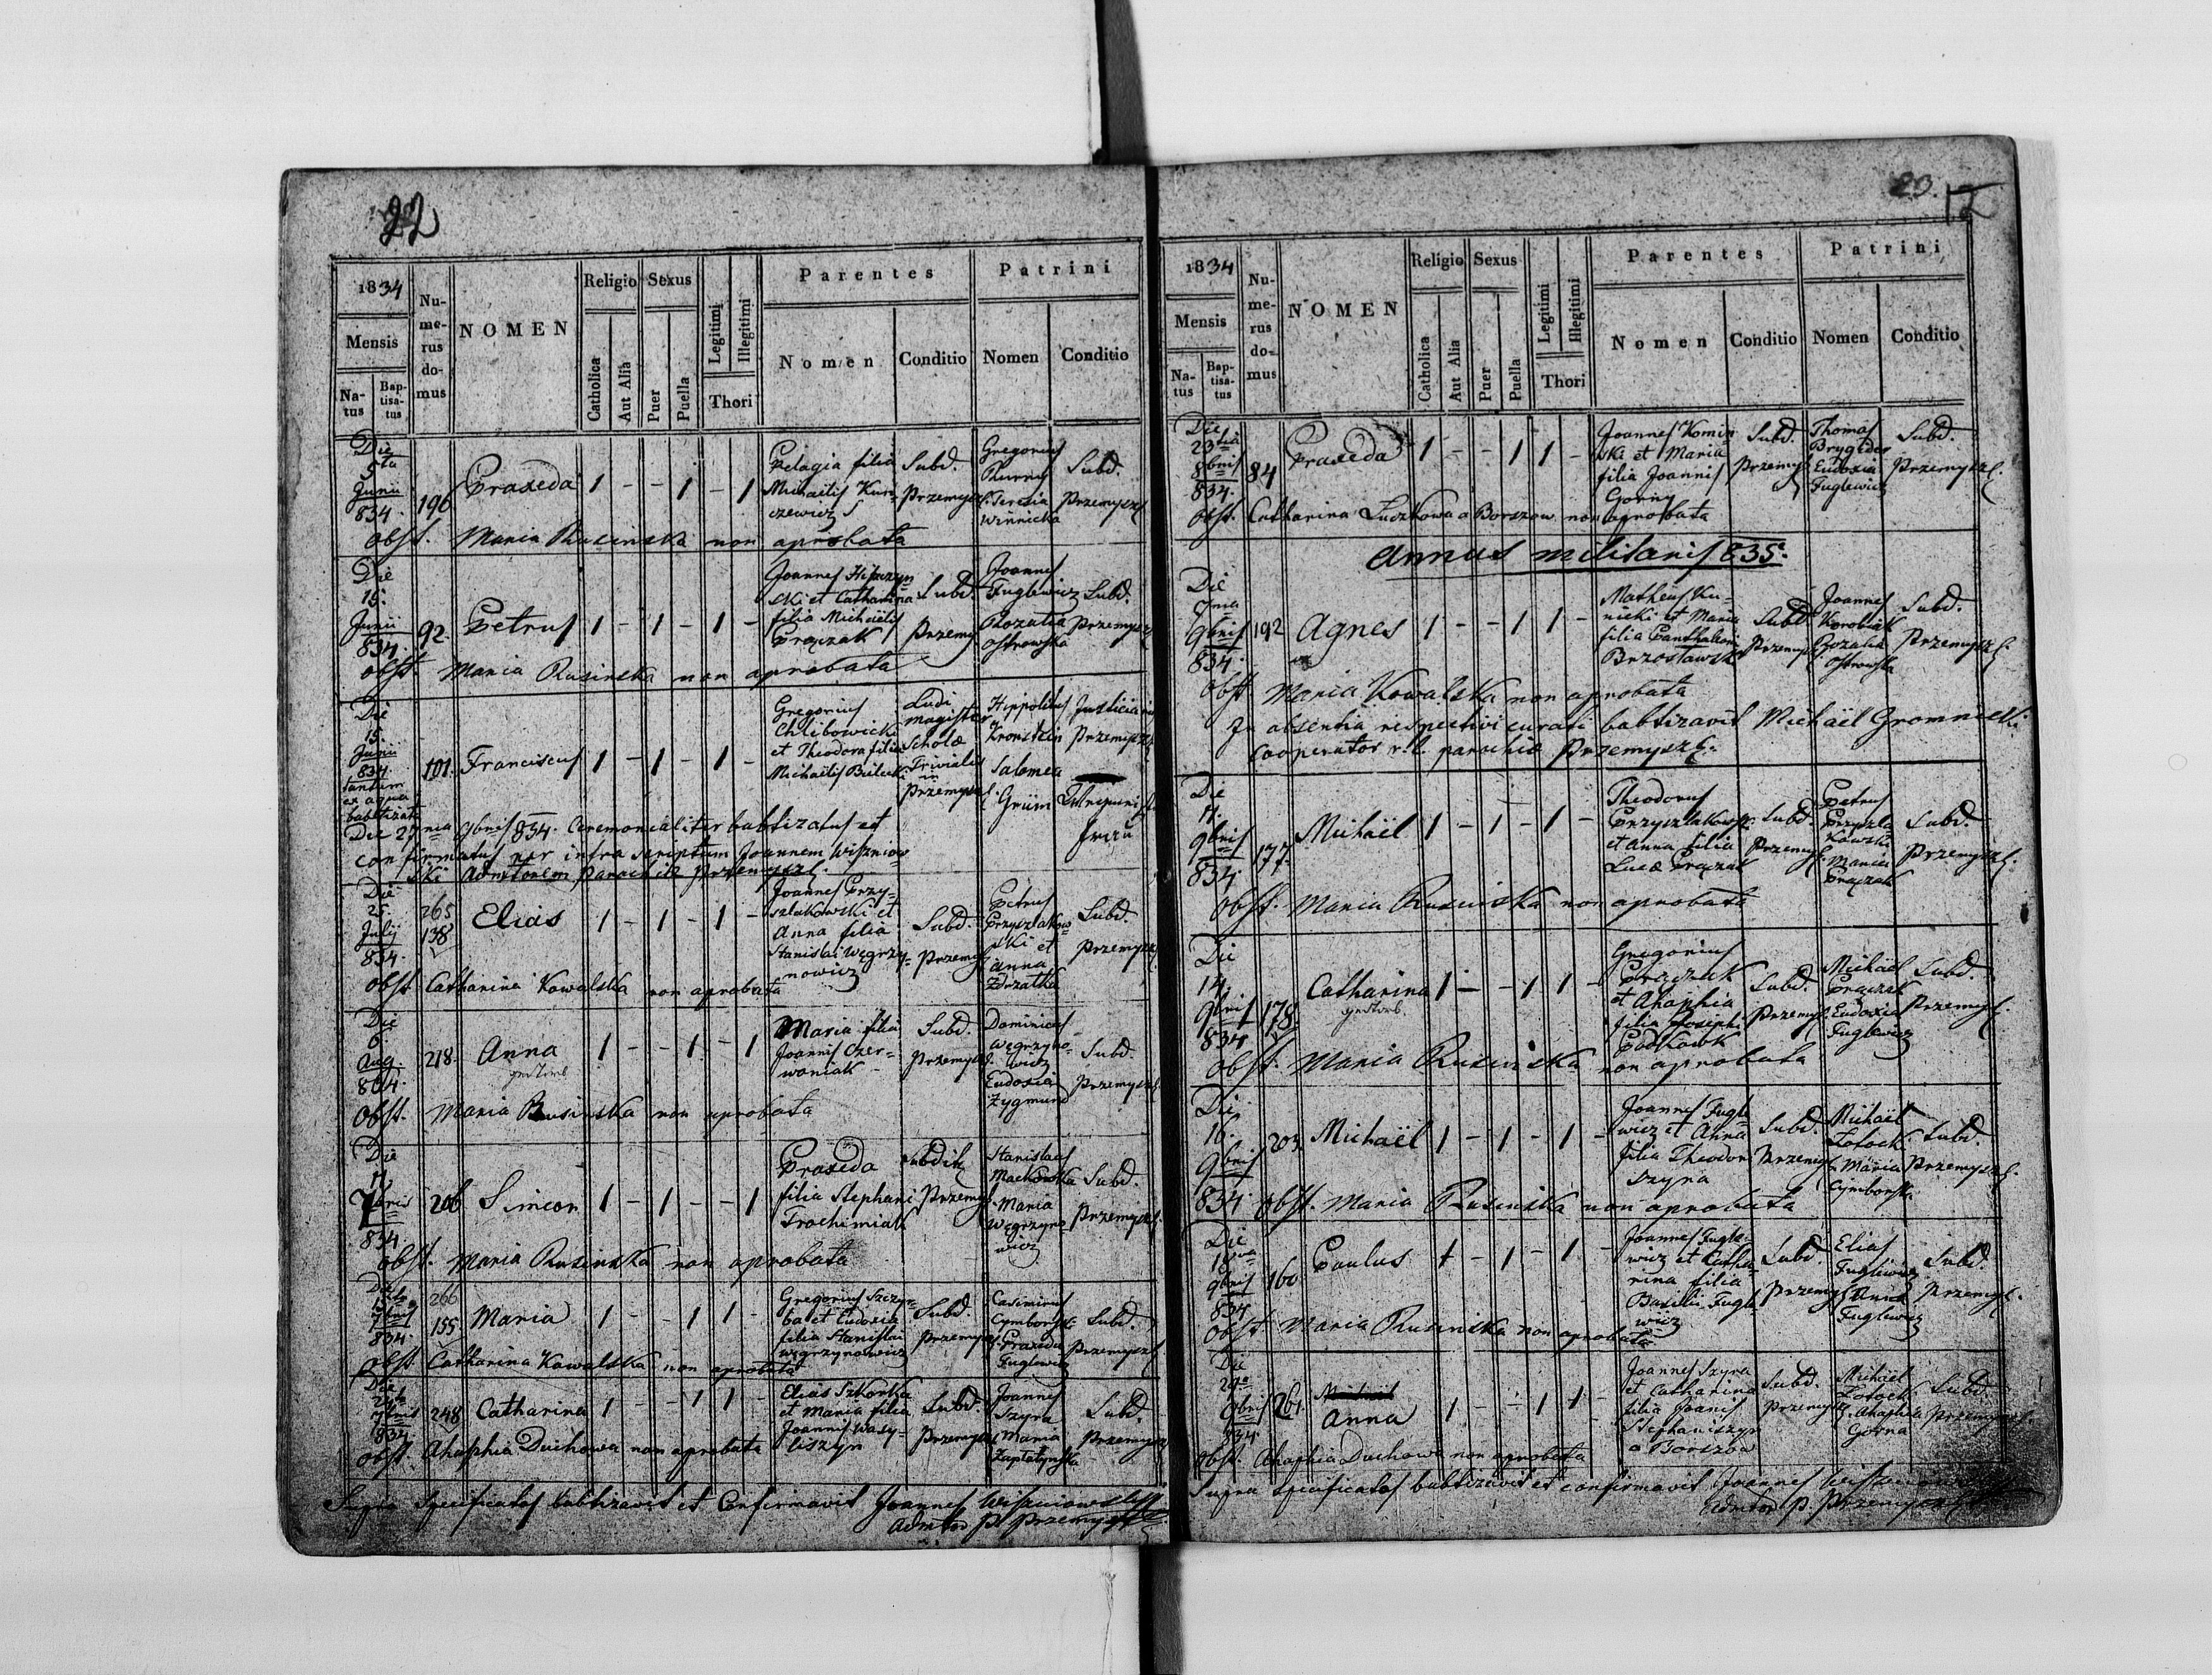 22
1834
Mensis
Natus
Baptisatus
Numerus domus
NOMEN
Religio
Catholica
Aut Alia
Sexus
Puer
Puella
Legitimi
Illegitimi
Thori
Parentes
Nomen
Conditio
Patrini
Nomen
Conditio
Die
5ta
Junii
834.
196
Praxeda
1 - - 1 - 1
Pelagia filia
Michaelis Kur-
czewicz
Subd.
Przemyszl.
Gregorius
Teresia
Winnicka
Subd.
Przemyszl.
Obst. Maria Rusinska non aprobata
Die
15.
Junii
834.
92.
Petrus
1 - 1 - 1 -
Joannes
ski et Catharina
filia Michaelis
Prączak
Subd.
Przemy
Joannes
Fuglewicz
Rozalia
Ostrowska
Subd.
Przemyszl.
Obst. Maria Rusinska non aprobata
Die
15.
Junii
834.
tantum
ex aqua
babtizatus
101.
Franciscus
1 - 1 - 1 -
Gregorius
Chlibowicki
et Theodora filia
Michaelis
Ludi
magister
Scholæ
Trivialis
in
Przemyszl.
Hippolitus
Salomea
Grüm
Przemyszl.
Die 27ma 9bris 834. Ceremonialiter babtizatus et
confirmatus per infra scriptum Joannem Wiszniow
ski Admtorem Parochiæ Przemyszl.
Die
25.
July
834.
265
138
Elias
1 - 1 - 1 -
Joannes Przy-
szlakowski et
Anna filia
Stanislai Węgrzy-
nowicz
Subd.
Przemyszl.
Petrus
Przyszlakow-
ski et
Anna
Zdrzałka
Subd.
Przemyszl.
Obst. Catharina Kowalska non aprobata
Die
6.
Aug.
834.
218.
Anna
1 - - 1 - 1
Maria filia
Joannis Czer-
waniak
Subd.
Przemyszl.
Dominicus
Węgrzyno-
wicz
Eudoxia
Zygmund
Subd.
Przemyszl.
Obst. Maria Rusinska non aprobata
Die
11
7bris
834
206
Simeon
1 - 1 - - 1
Praxeda
filia Stephani
Trochimiak
Subdit.
Przemysl.
Stanislaus
Maria
Węgrzyno
wicz
Subd.
Przemyszl.
Obst. Maria Rusinska non aprobata
Die
7bris
834.
266
155
Maria
1 - - 1 1 -
Gregorius Szczyr-
ba et Eudoxia
filia Stanislai
Węgrzynowicz
Subd.
Przemyszl.
Casimirus
Cymborski
Praxeda
Fuglewicz
Subd.
Przemyszl.
Obst. Catharina Kowalska non aprobata
Die
7bris
834
248
Catharina
1 - - 1 1 -
Elias Szkorka
et Maria filia
Joannis Wasy-
liszyn
Subd.
Przemyszl.
Joannes
Szyra
Maria
Zaplatynska
Subd.
Przemyszl.
Obst. Ahaphia Duchowa non aprobata
Supra specificatos babtizavit et Confirmavit Joannes Wiszniowski
Admtor P. Przemyszl.
23.
17
1834
Mensis
Natus
Baptisatus
Numerus domus
NOMEN
Religio
Catholica
Aut Alia
Sexus
Puer
Puella
Legitimi
Illegitimi
Thori
Parentes
Nomen
Conditio
Patrini
Nomen
Conditio
Die
23tia
8bris
834.
84
Praxeda
1 - - 1 1 -
Joannes Komin
ski et Maria
filia Joannis
Gorny
Subd.
Przemysl
Thomas
Brygider
Eudoxia
Fuglewicz
Subd.
Przemyszl.
Obst. Catharina Luczkowa a Borszow non aprobata
Annus militaris 835.
Die
7ma
9bris
834.
192
Agnes
1 - - 1 1 -
Matheus Ku-
nicki et Maria
filia Panthaleoni
Brzostawski
Subd.
Przemysl.
Joannes
Korobiak
Rozalia
Ostrowska
Subd.
Przemyszl.
Obst Maria Kowalska non aprobata
In absentia respectivi curati babtizavit Michaël Gromnicki
Cooperator r. l. parochiæ Przemyszl.
Die
11.
9bris
834.
177.
Michaël
1 - 1 - 1 -
Theodorus
Przyszlakowski
et Anna filia
Lucæ Prączak
Subd.
Przemysl.
Petrus
Przyszla-
kowski
Maria
Prączak
Subd.
Przemyszl.
Obst. Maria Rusinska non aprobata
Die
14.
9bris
834
178
Catharina
1 - - 1 1 -
Gregorius
Prączak
et Ahaphia
filia Josephi
Subd.
Przemysl.
Michaël
Prączak
Eudoxia
Fuglewicz
Subd.
Przemysl.
Obst. Maria Rusinska non aprobata
Die
16.
9bris
834.
203
Michaël
1 - 1 - 1 -
Joannes Fugle
wicz et Anna
filia Theodori
Szyra
Subd.
Przemysl.
Michaël
Maria
Cymborska
Subd.
Przemyszl.
Obst. Maria Rusinska non aprobata
Die
18va
9bris
834
160
Paulus
1 - 1 - 1 -
Joannes Fugle-
wicz et Catha-
rina filia
Basilii Fugle-
wicz
Subd.
Przemysl.
Elias
Fuglewicz
Anna
Fuglewicz
Subd.
Przemysl.
Obst. Maria Rusinska non aprobata
Die
9bris
834
261.
Anna
1 - - 1 1 -
Joannes Szyra
et Catharina
filia Joanis
Stephaniszyn
a Borszow
Subd.
Przemyszl.
Michaël
Ahaphia
Gorna
Subd.
Przemyszl.
Obst. Ahaphia Duchowa non aprobata
Supra specificatos babtizavit et confirmavit Joannes Wiszniowski
Admtor P. Przemyszl.